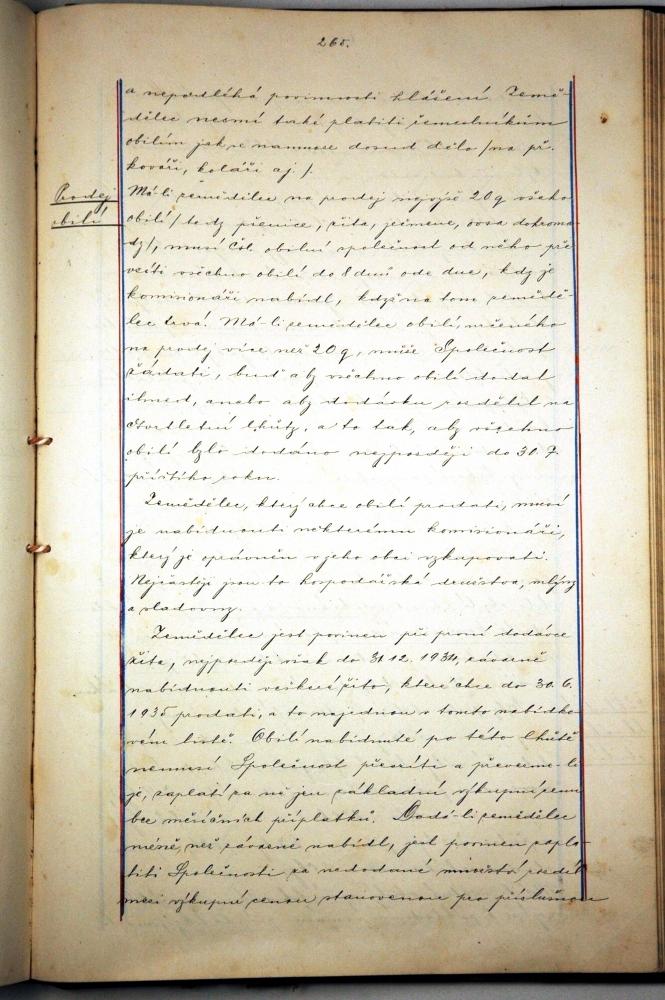 265.
a nepodléhá povinnosti hlášení. Země-
dělec nesmí také platiti řemeslníkům
obilím jak se namnoze dosud dělo /na př.
kováři, koláři aj./.
Prodej
obilí
Má-li zemědělec na prodej nejvýše 20 q všeho
obilí / tedy pšenice, žita, ječmene, ovsa dohroma-
dy/, musí Čsl. obilní společnost od něho pře-
vzíti všechno obilí do 8 dnů ode dne, kdy je
komisionáři nabídl, když na tom země-
lec trvá. Má-li zemědělec obilí, určeného
na prodej více než 20 q, může Společnost
žádati, buď aby všechno obilí dodal
ihned, anebo aby dodávku rozdělil na
čtvrtletní lhůty, a to tak, aby všechno
obilí bylo dodáno nejpozději do 30. 7.
příštího roku.
Zemědělec, který chce obilí prodati, musí
je nabídnouti některému komisionáři,
který je oprávněn v jeho obci vykupovati.
Nejčastěji jsou to hospodářská družstva, mlýny
a sladovny.
Zemědělec jest povinen při první dodávce
žita, nejpozději však do 31. 12. 1934, závazně
nabídnouti veškeré žito, které chce do 30. 6.
1935 prodati, a to najednou v tomto nabídko-
vém listě. Obilí nabídnuté po této lhůtě
nemusí Společnost převzíti a převezme-li
je, zaplatí za ně jen základní výkupní cenu
bez měsíčních příplatků. Dodá-li zemědělec
méně, než závazně nabídl, jest povinen zapla-
titi Společnosti za nedodané množství rozdíl
mezi výkupní cenou stanovenou pro příslušnou